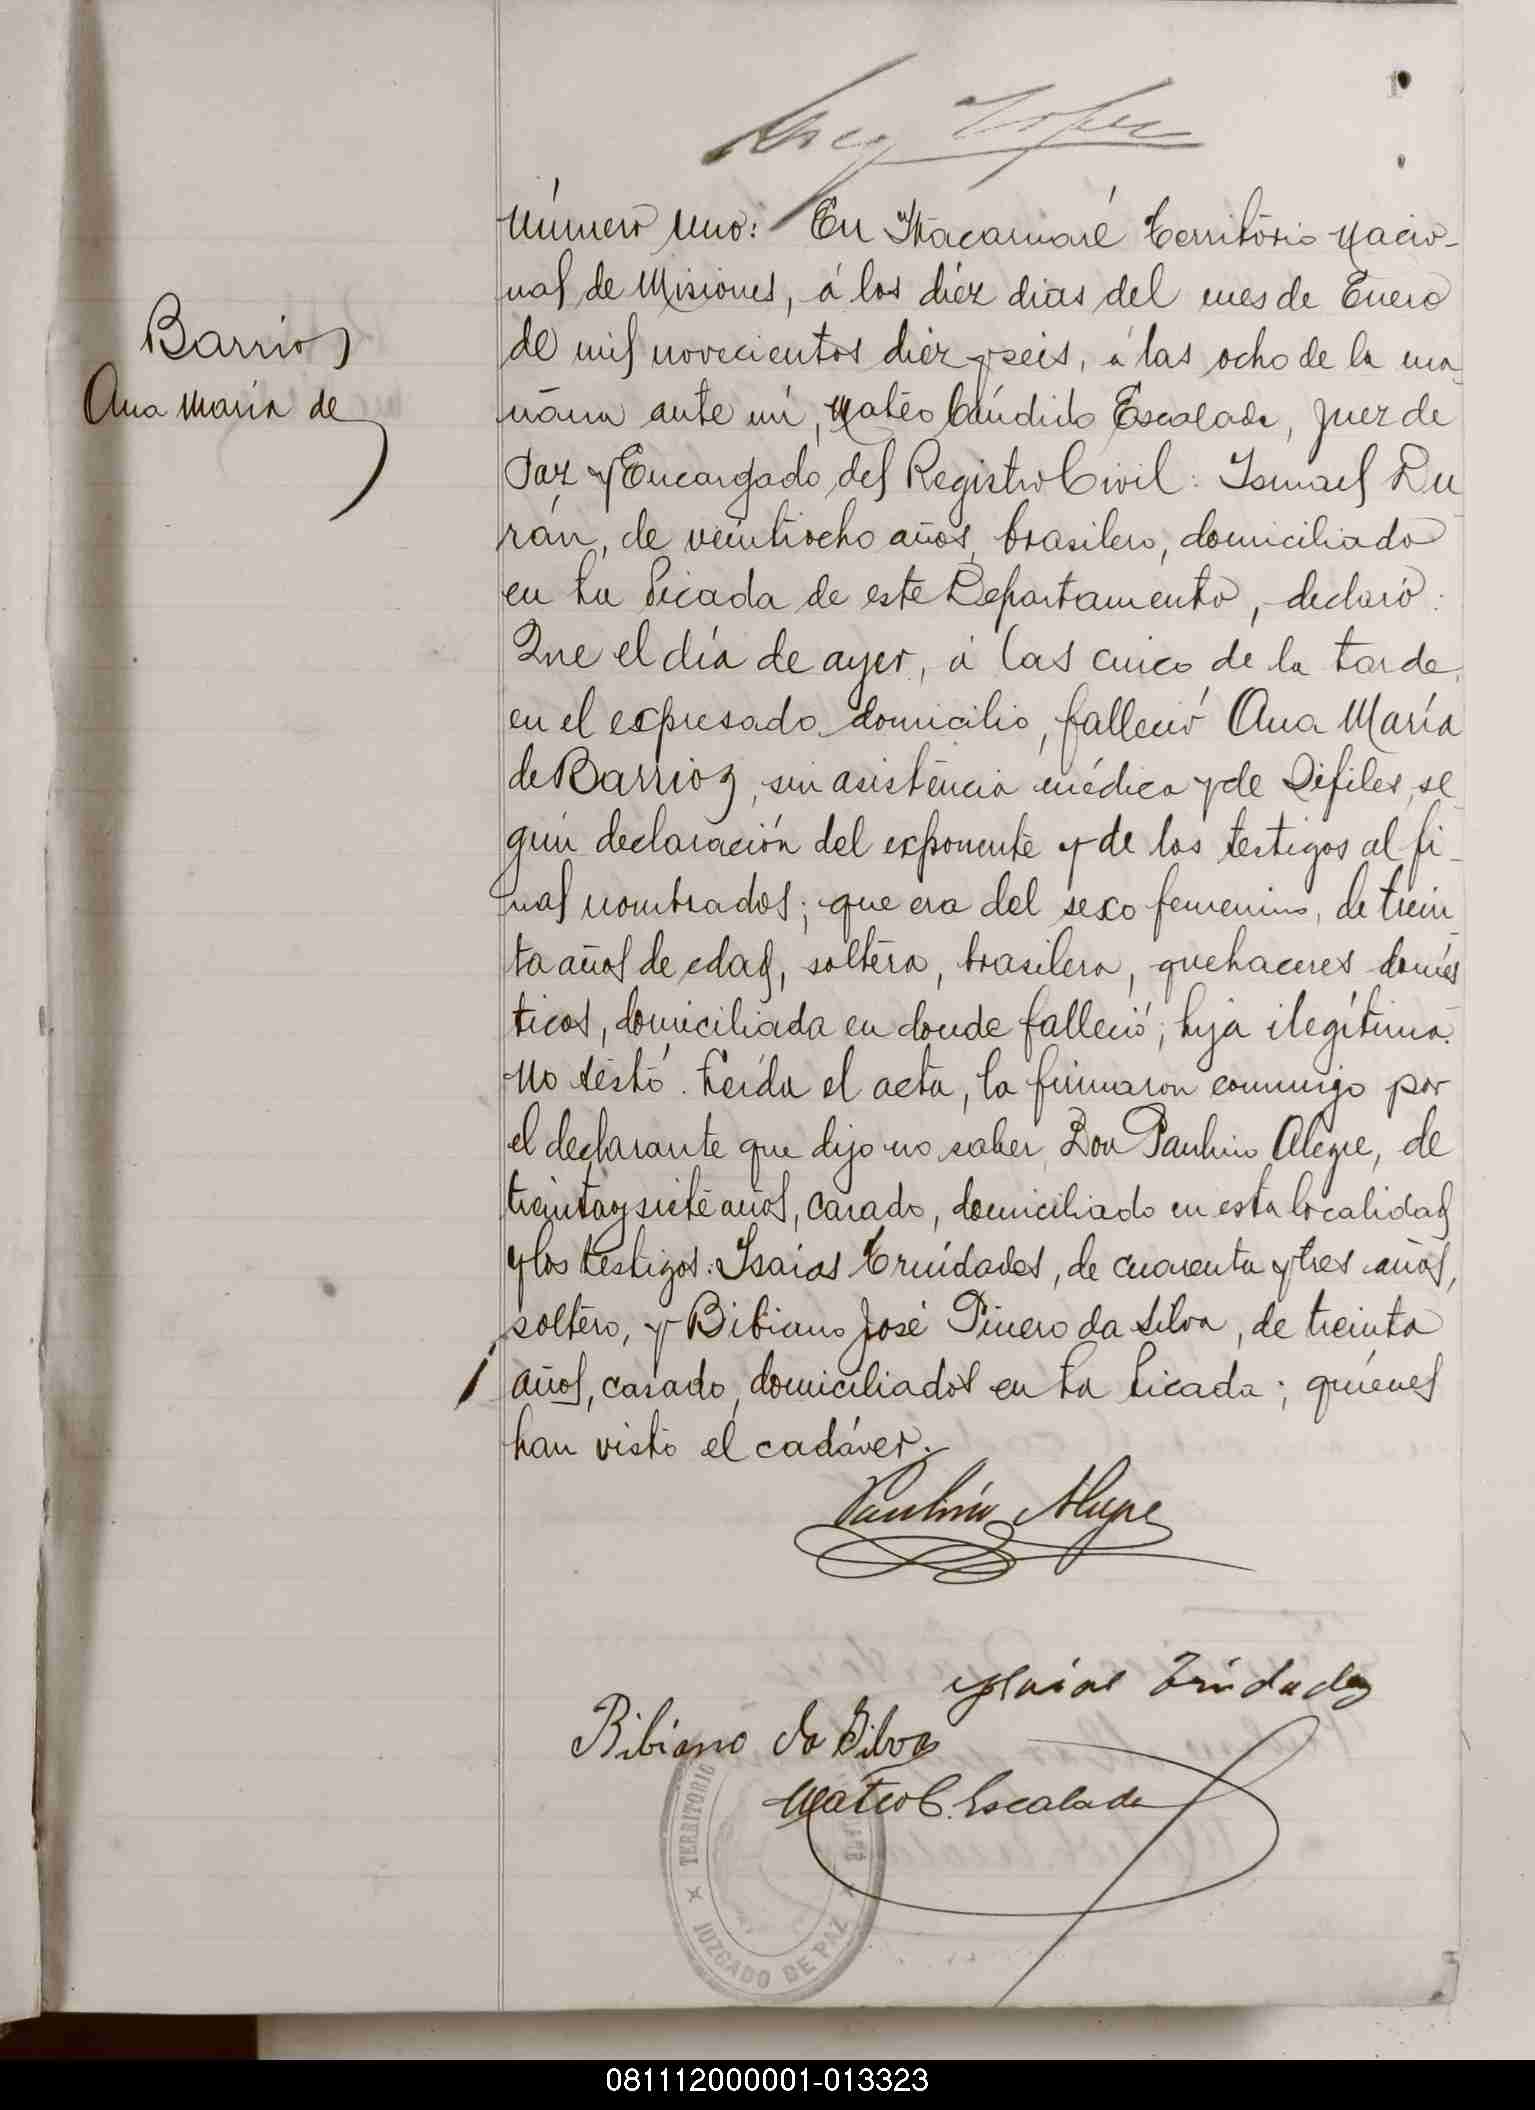 1
Número uno: En Itacaruaré Territorio Nacio-
nal de Misiones, á los diéz dias del mes de Enero
Barrios
de mil novecientos diez y seis, á las ocho de la ma-
Ana María de
ñana ante mí, Matéo Cándido Escalada, Juez de
Paz y Encargado del Registro Civil: Ismael Du-
rán, de veintiocho años, brasilero, domiciliado
en La Picada de este Departamento, declaró:
Que el día de ayer, á las cinco de la tarde,
en el expresado domicilio, falleció Ana María
de Barrios, sin asistencia médica y de Sifiles, se-
gún declaración del exponente y de los testigos al fi-
nal nombrados; que era del sexo femenino, de trein-
ta años de edad, soltera, brasilera, quehaceres domés
ticos, domiciliada en donde falleció; hija ilegítima.
No testó. Leída el acta, la firmaron conmigo por
el declarante que dijo no saber, Don Paulino Alegre, de
treinta y siete años, casado, domiciliado en esta localidad
y los testigos: Isaías Trindades, de cuarenta y tres años,
soltero, y Bibiano José Pinero da Silva, de treinta
años, casado, domiciliados en La Picada; quiénes
han visto el cadáver.
Paulino Alegre
Isaias Trindades
Bibiano da Silva
Matéo C. Escalada
TERRITORIO
JUZGADO DE PAZ
081112000001-013323